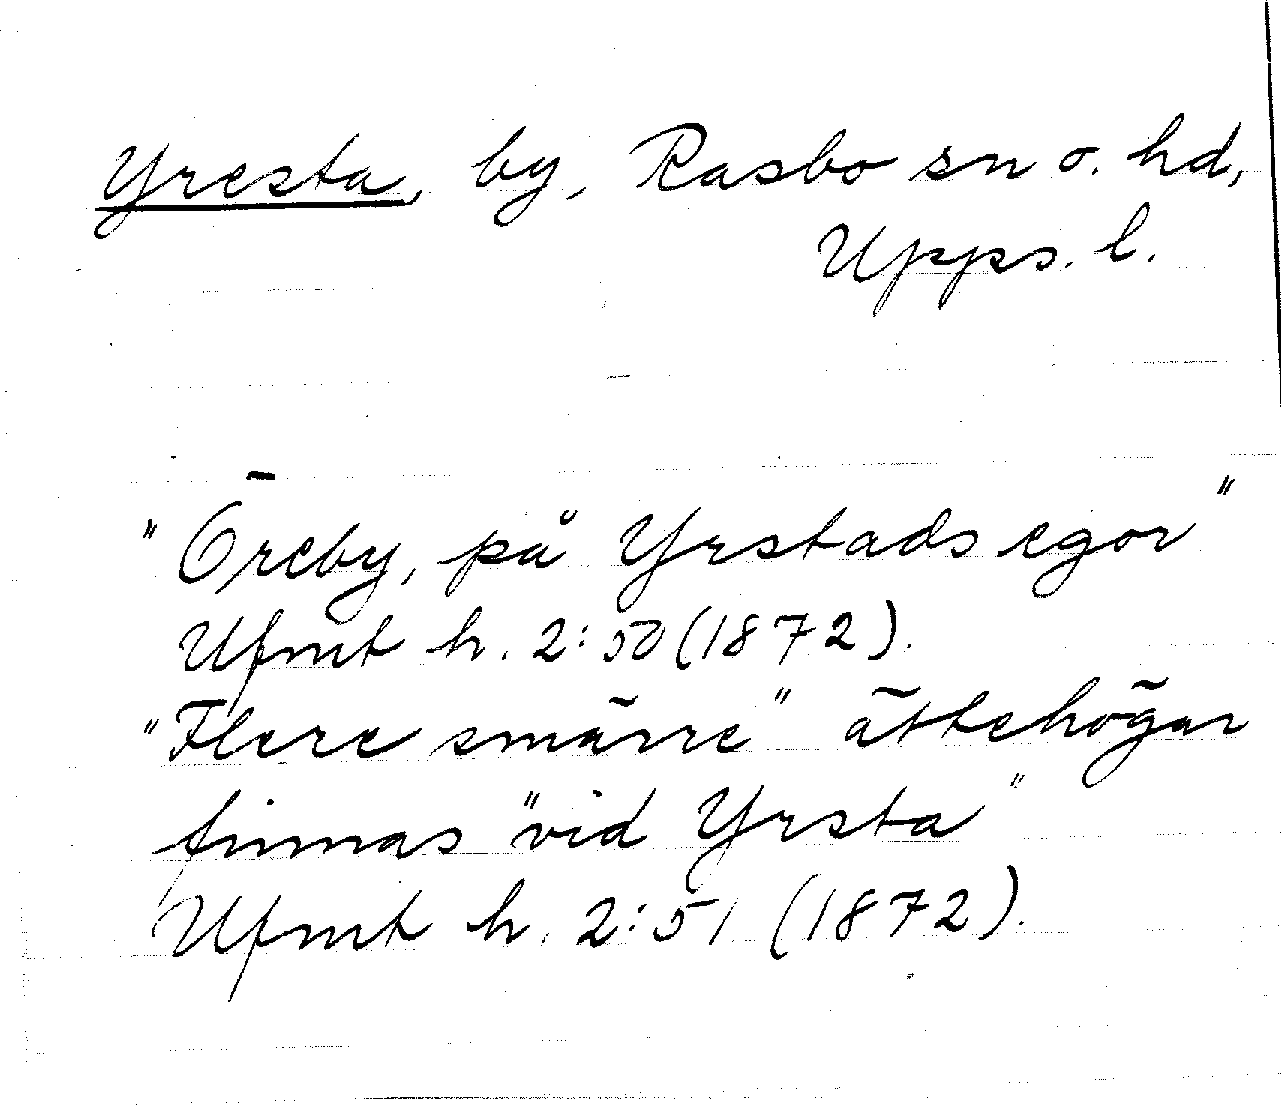 Yresta, by, Rasbo sn o. hd,
Upps. l.
"Öreby, på Yrstads egor"
Ufmt h. 2:50 (1872).
"Flere smärre" ättehögar
finnas "vid Yrsta"
Ufmt h. 2:51 (1872).